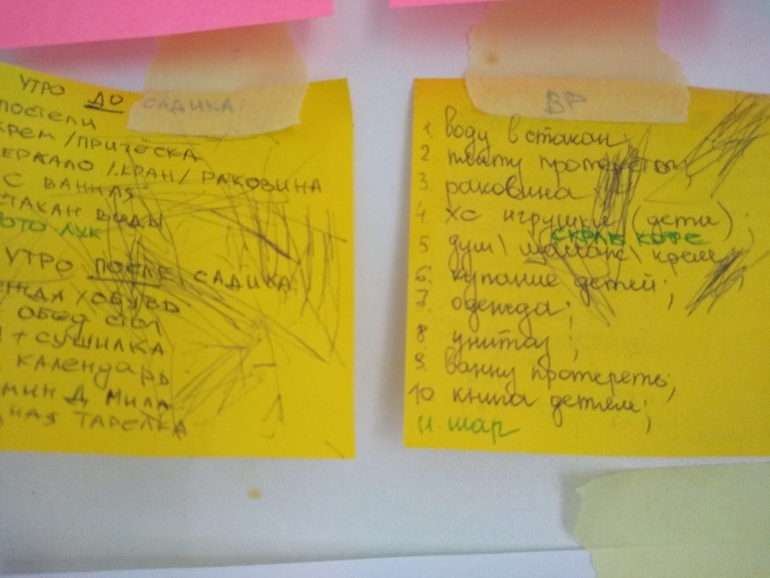 УТРО ДО САДИКА:
ПОСТЕЛИ
КРЕМ / ПРИЧЕСКА
ЕРКАЛО / КРАН / РАКОВИНА
С ВАННАЯ
СТАКАН ВОДЫ
ФОТО ЛУК
УТРО ПОСЛЕ САДИКА:
ЕЖДА / ОБУВЬ
ОБЕД СТОЛ
+ СУШИЛКА
КАЛЕНДАРЬ
МИН Д МИЛА
НАЯ ТАРЕЛКА
ВР
1. воду в стакан;
2. плиту протереть;
3. раковина
4. ХС игрушки (дети);
СКРАБ КОФЕ
5. душ \ \ крем;
6. купание детей;
7. одежда;
8. унитаз;
9. ванну протереть;
10. книга детям;
11. шар